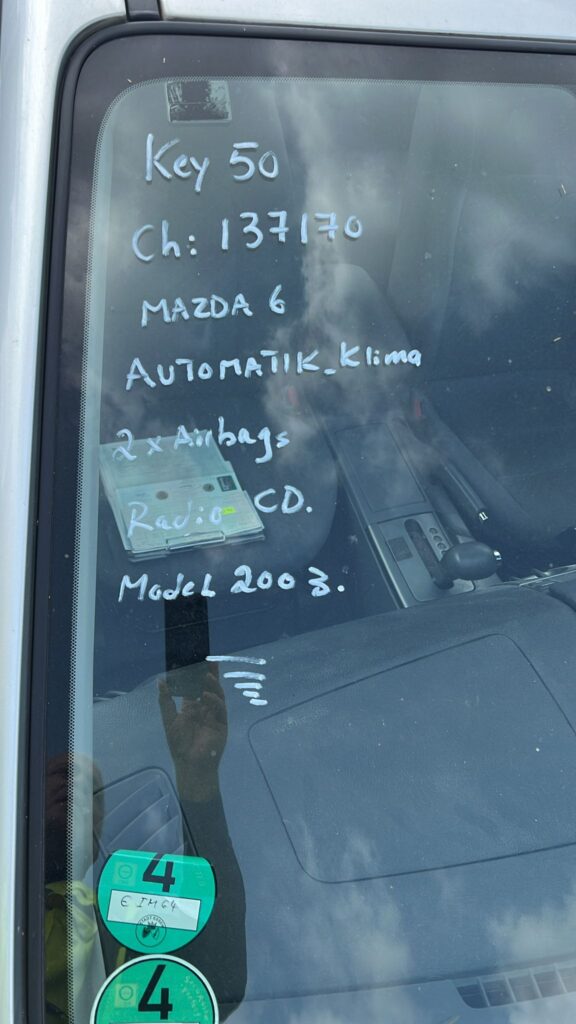 Key 50
Ch: 137170
MAZDA 6
AUTOMATIK_Klima
2x Airbags
Radio CD.
Model 2003.
4
4